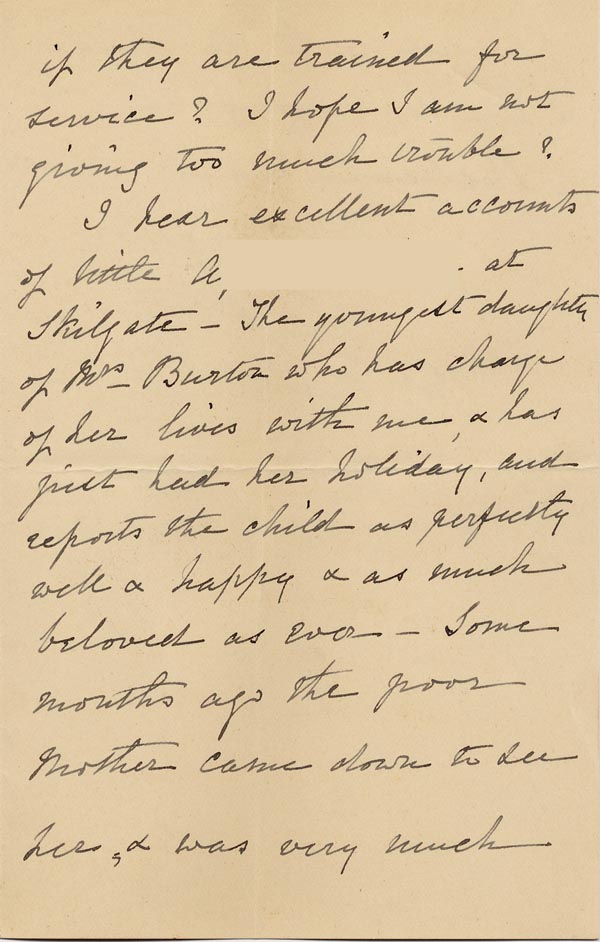 if they are trained for
service? I hope I am not
giving too much trouble?
I hear excellent accounts
of little A. at
Skilgate – The youngest daughter
of Mrs Burton who has charge
of her lives with me, & has
just had her holiday, and
reports the child as perfectly
well & happy & as much
beloved as ever – Some
months ago the poor
Mother came down to see
her, & was very much